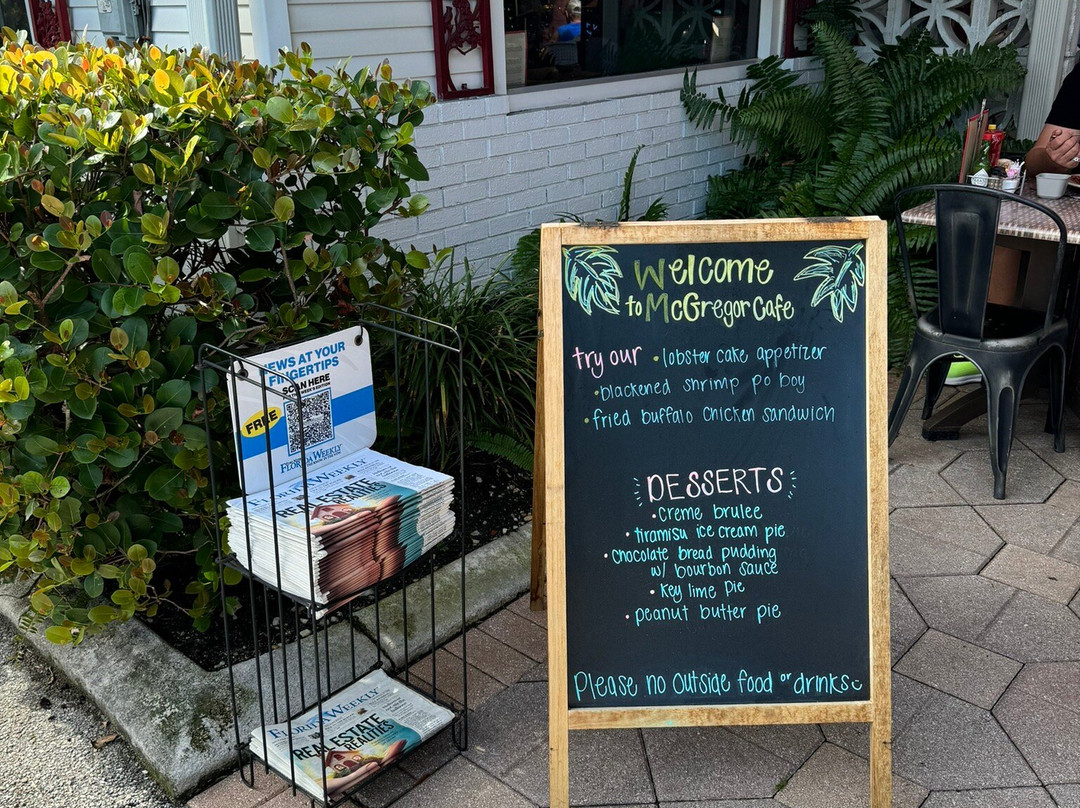 NEWS AT YOUR
FINGERTIPS
SCAN HERE
FREE
FLORIDA WEEKLY
FLORIDA WEEKLY
REAL ESTATE
REALITIES
FLORIDA WEEKLY
REAL ESTATE
REALITIES
Welcome
to McGregor Cafe
try our • lobster cake appetizer
• blackened shrimp po boy
• fried buffalo chicken sandwich
DESSERTS
• creme brulee
• tiramisu ice cream pie
• chocolate bread pudding
w/ bourbon sauce
• key lime pie
• peanut butter pie
Please no outside food or drinks